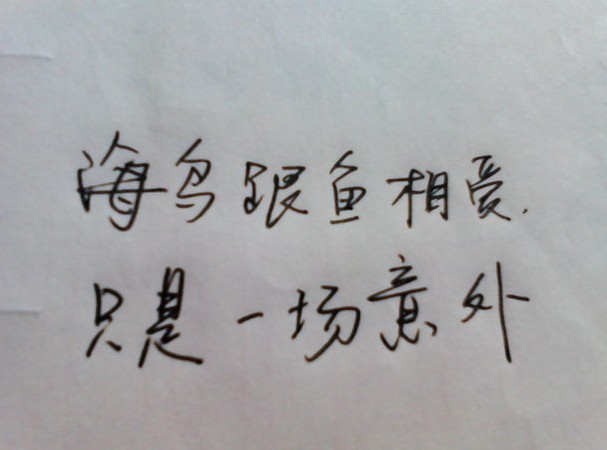 海鸟跟鱼相爱.
只是一场意外